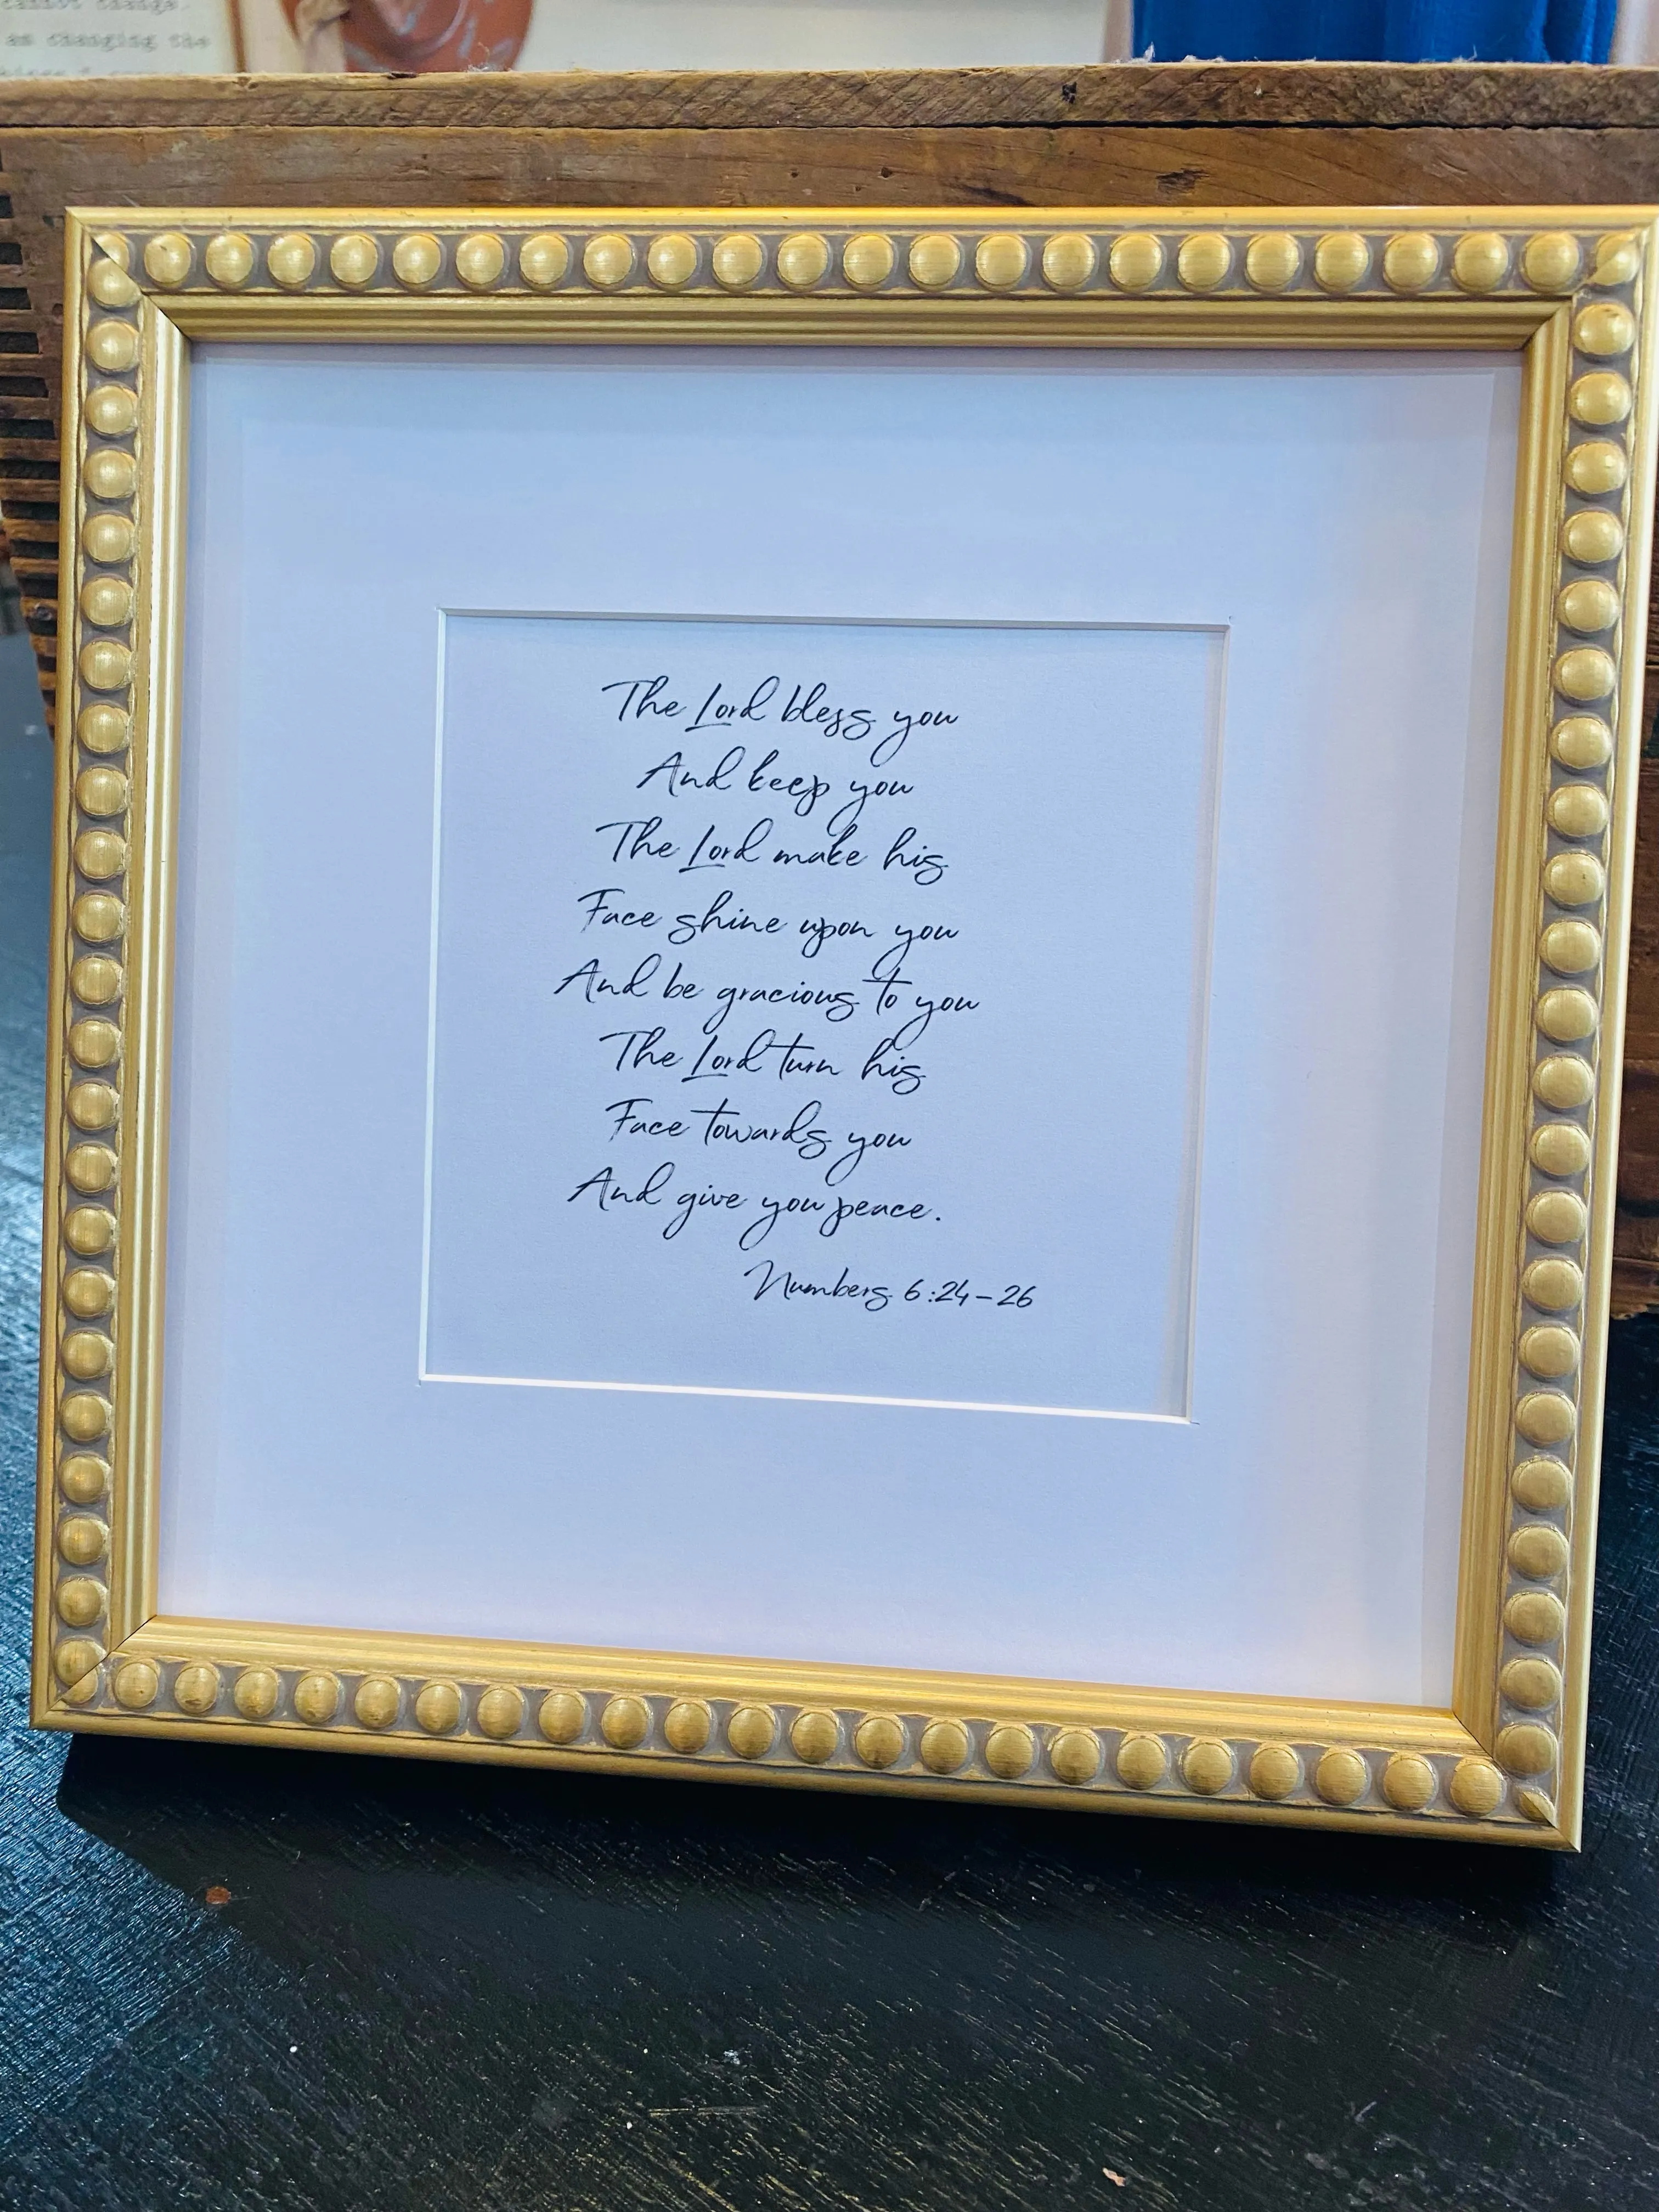 cannot change.
as changing the
The Lord bless you
And keep you
The Lord make his
Face shine upon you
And be gracious to you
The Lord turn his
Face towards you
And give you peace.
Numbers 6:24-26